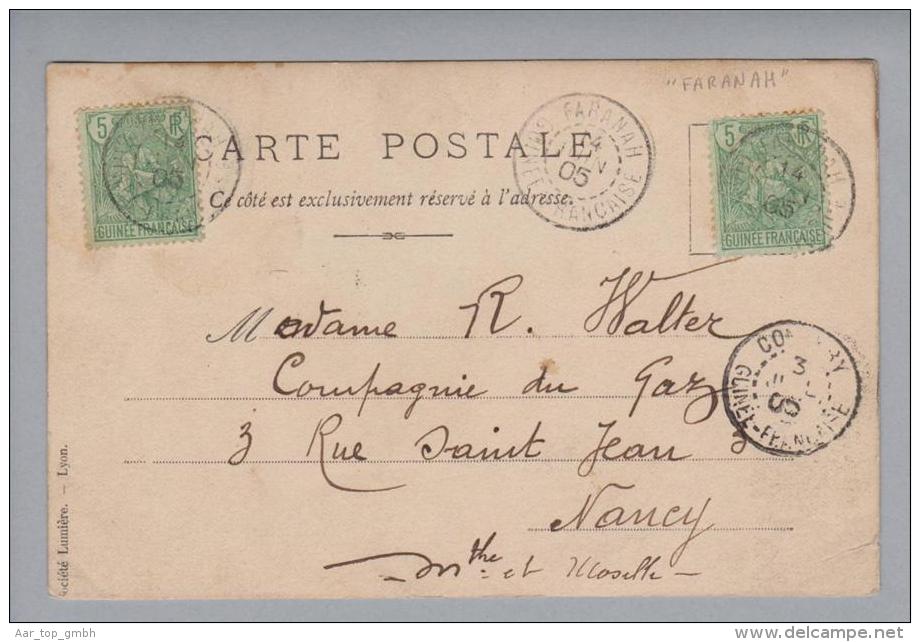 "FARANAH"
5 RF
GUINÉE FRANÇAISE
05
FARANAH
05
GUINÉE FRANÇAISE
5 RF
GUINÉE FRANÇAISE
14
05
CARTE POSTALE
Ce côté est exclusivement réservé à l'adresse.
Madame R. Walter
Compagnie du Gaz
3 Rue Saint Jean 3
Nancy
Mthe et Moselle
3
GUINÉE-FRANÇAISE
Société Lumière. — Lyon.
Aar_top_gmbh
www.delcampe.net